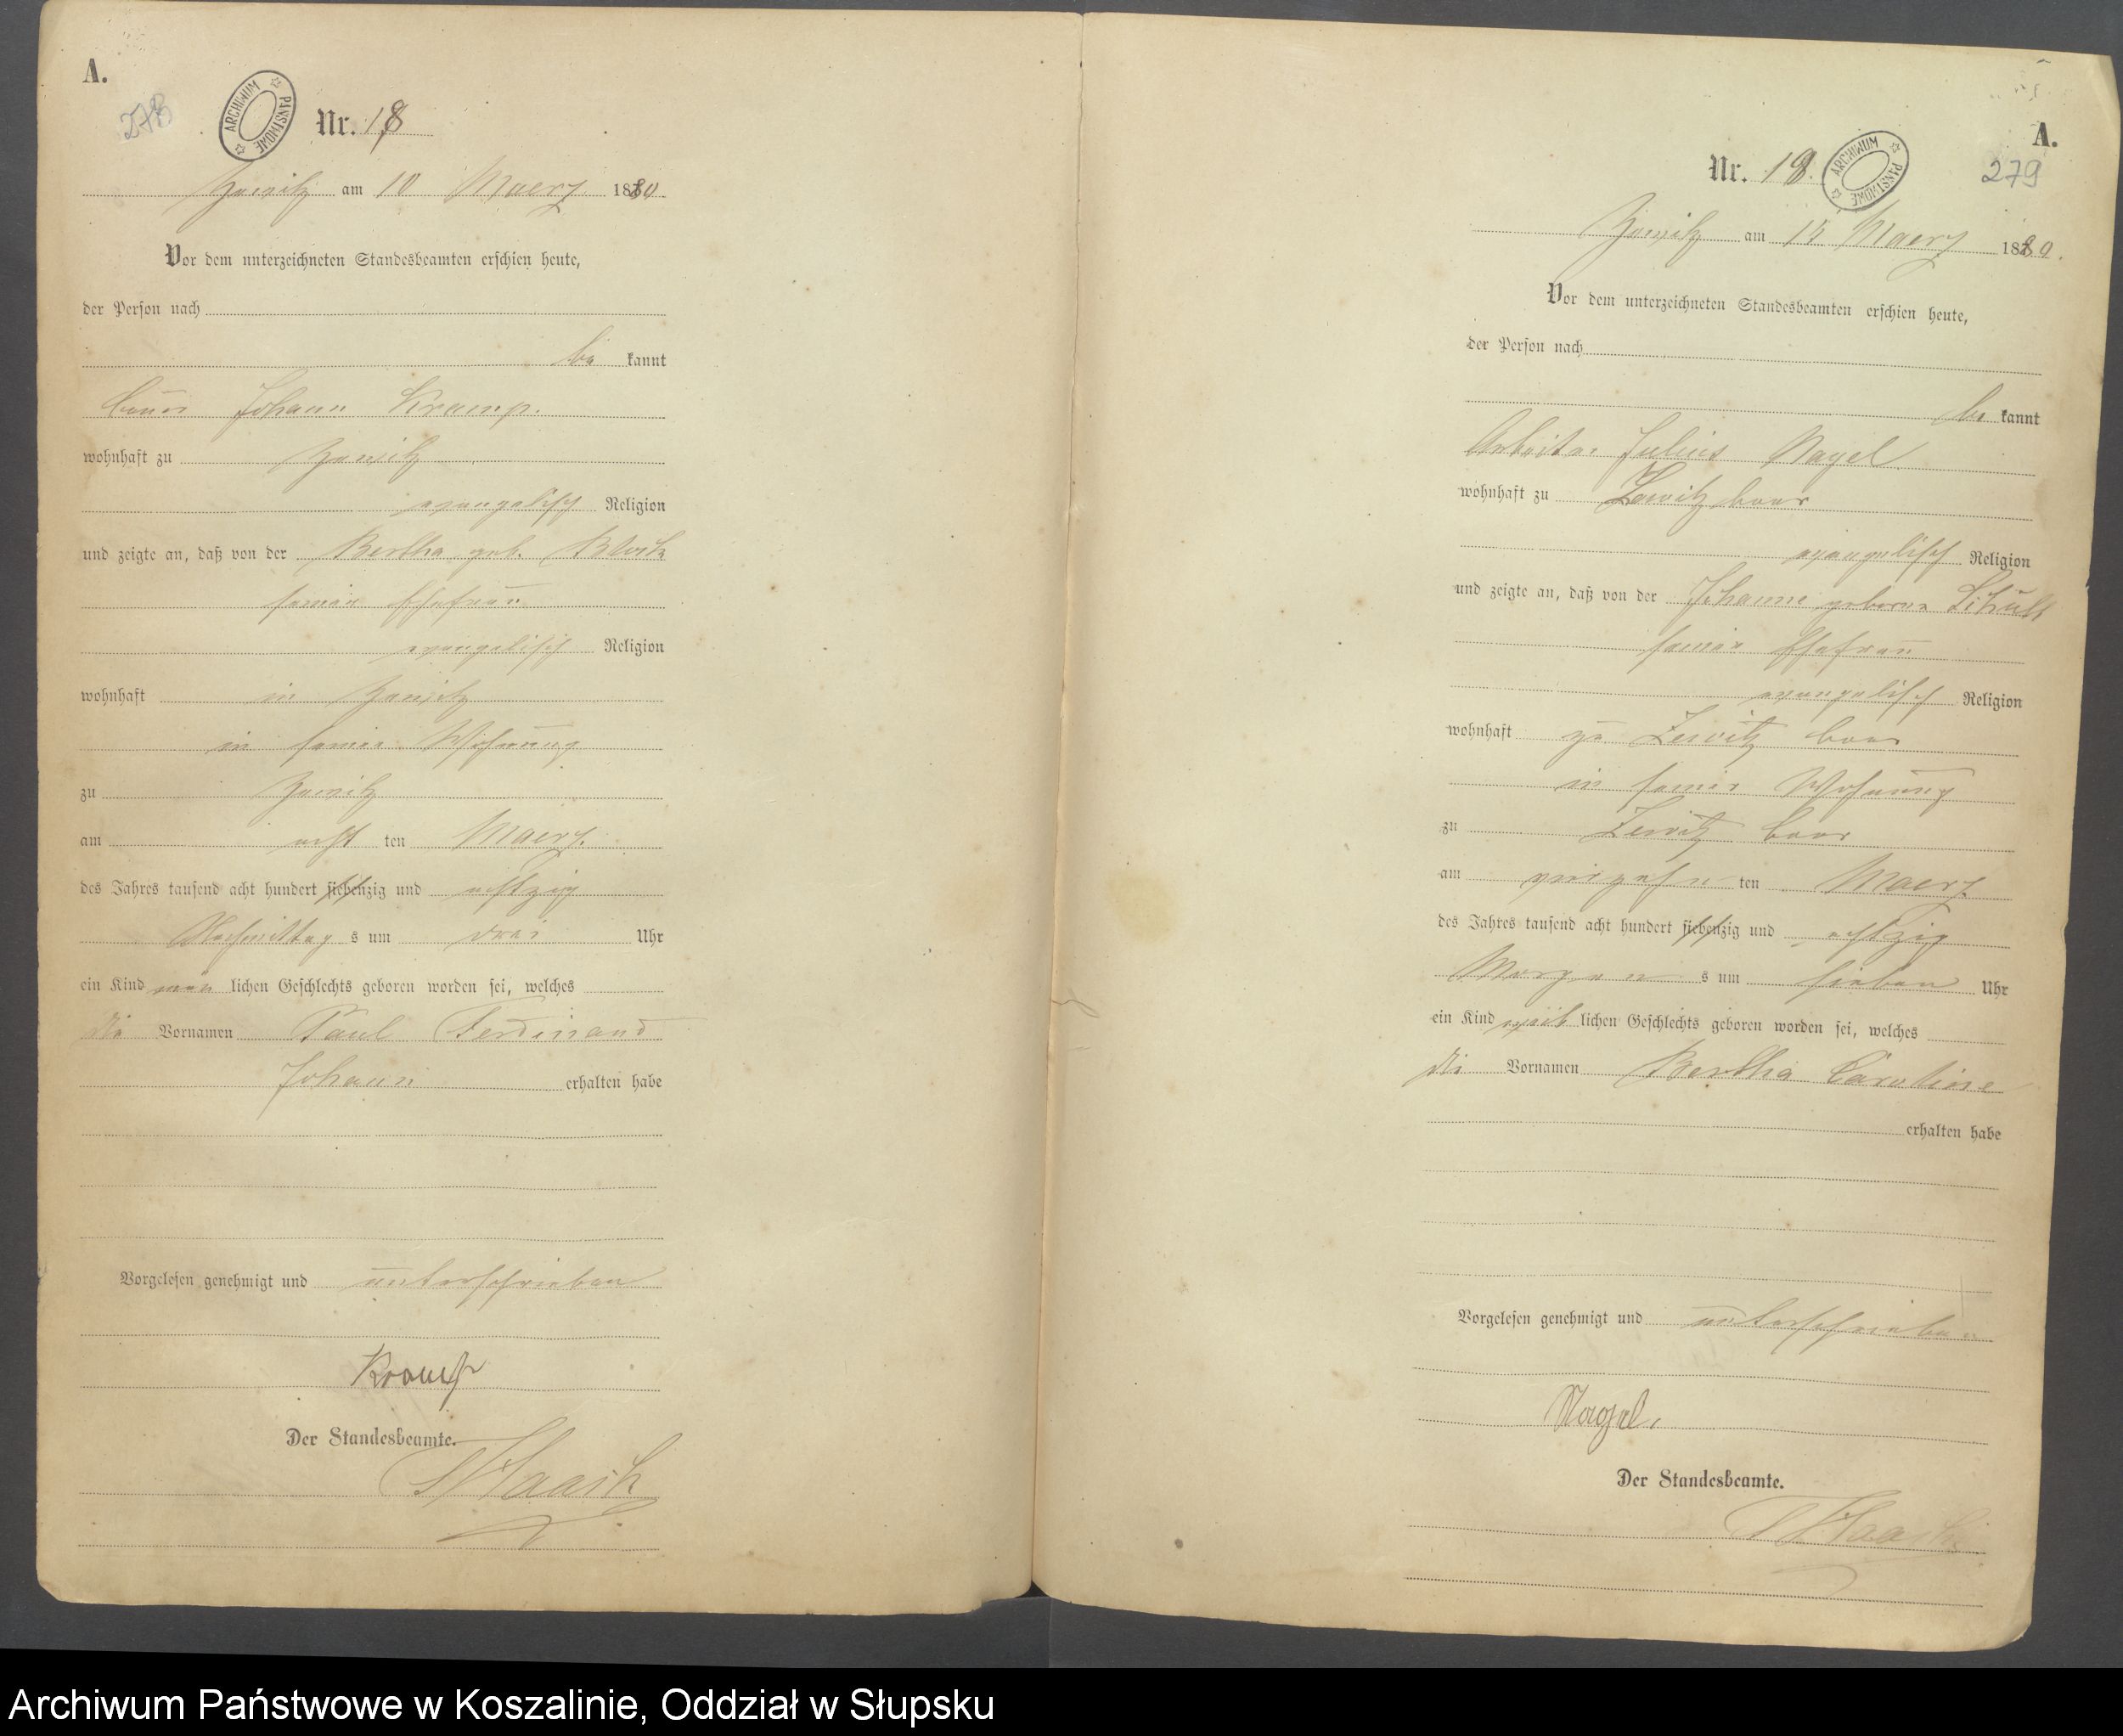 A.
278
ARCHIWUM PAŃSTWOWE
Nr. 18
Zewitz am 10 Maerz 1880
Vor dem unterzeichneten Standesbeamten erschien heute,
der Person nach
be kannt
Bauer Johann Kramp.
wohnhaft zu Zewitz
evangelisch Religion
und zeigte an, daß von der Bertha geb. Block
seiner Ehefrau
evangelisch Religion
wohnhaft in Zewitz
in seiner Wohnung
zu Zewitz
am acht ten Maerz
des Jahres tausend acht hundert siebenzig und achtzig
Nachmittag s um drei Uhr
ein Kind män lichen Geschlechts geboren worden sei, welches
die Vornamen Paul Ferdinand
Johann erhalten habe
Vorgelesen genehmigt und unterschrieben
Kramp
Der Standesbeamte.
Haask
A.
279
Nr. 19.
ARCHIWUM PAŃSTWOWE
Zewitz am 15 Maerz 1880.
Vor dem unterzeichneten Standesbeamten erschien heute,
der Person nach
be kannt
Arbeiter Julius Nagel
wohnhaft zu Zewitz
evangelisch Religion
und zeigte an, daß von der Johanne geborne
seiner Ehefrau
evangelisch Religion
wohnhaft zu Zewitz
in seiner Wohnung
zu Zewitz
am ten Maerz
des Jahres tausend acht hundert siebenzig und achtzig
Morgen s um sieben Uhr
ein Kind weib lichen Geschlechts geboren worden sei, welches
die Vornamen Bertha Caroline
erhalten habe
Vorgelesen genehmigt und unterschrieben
Nagel.
Der Standesbeamte.
Haask
Archiwum Państwowe w Koszalinie, Oddział w Słupsku